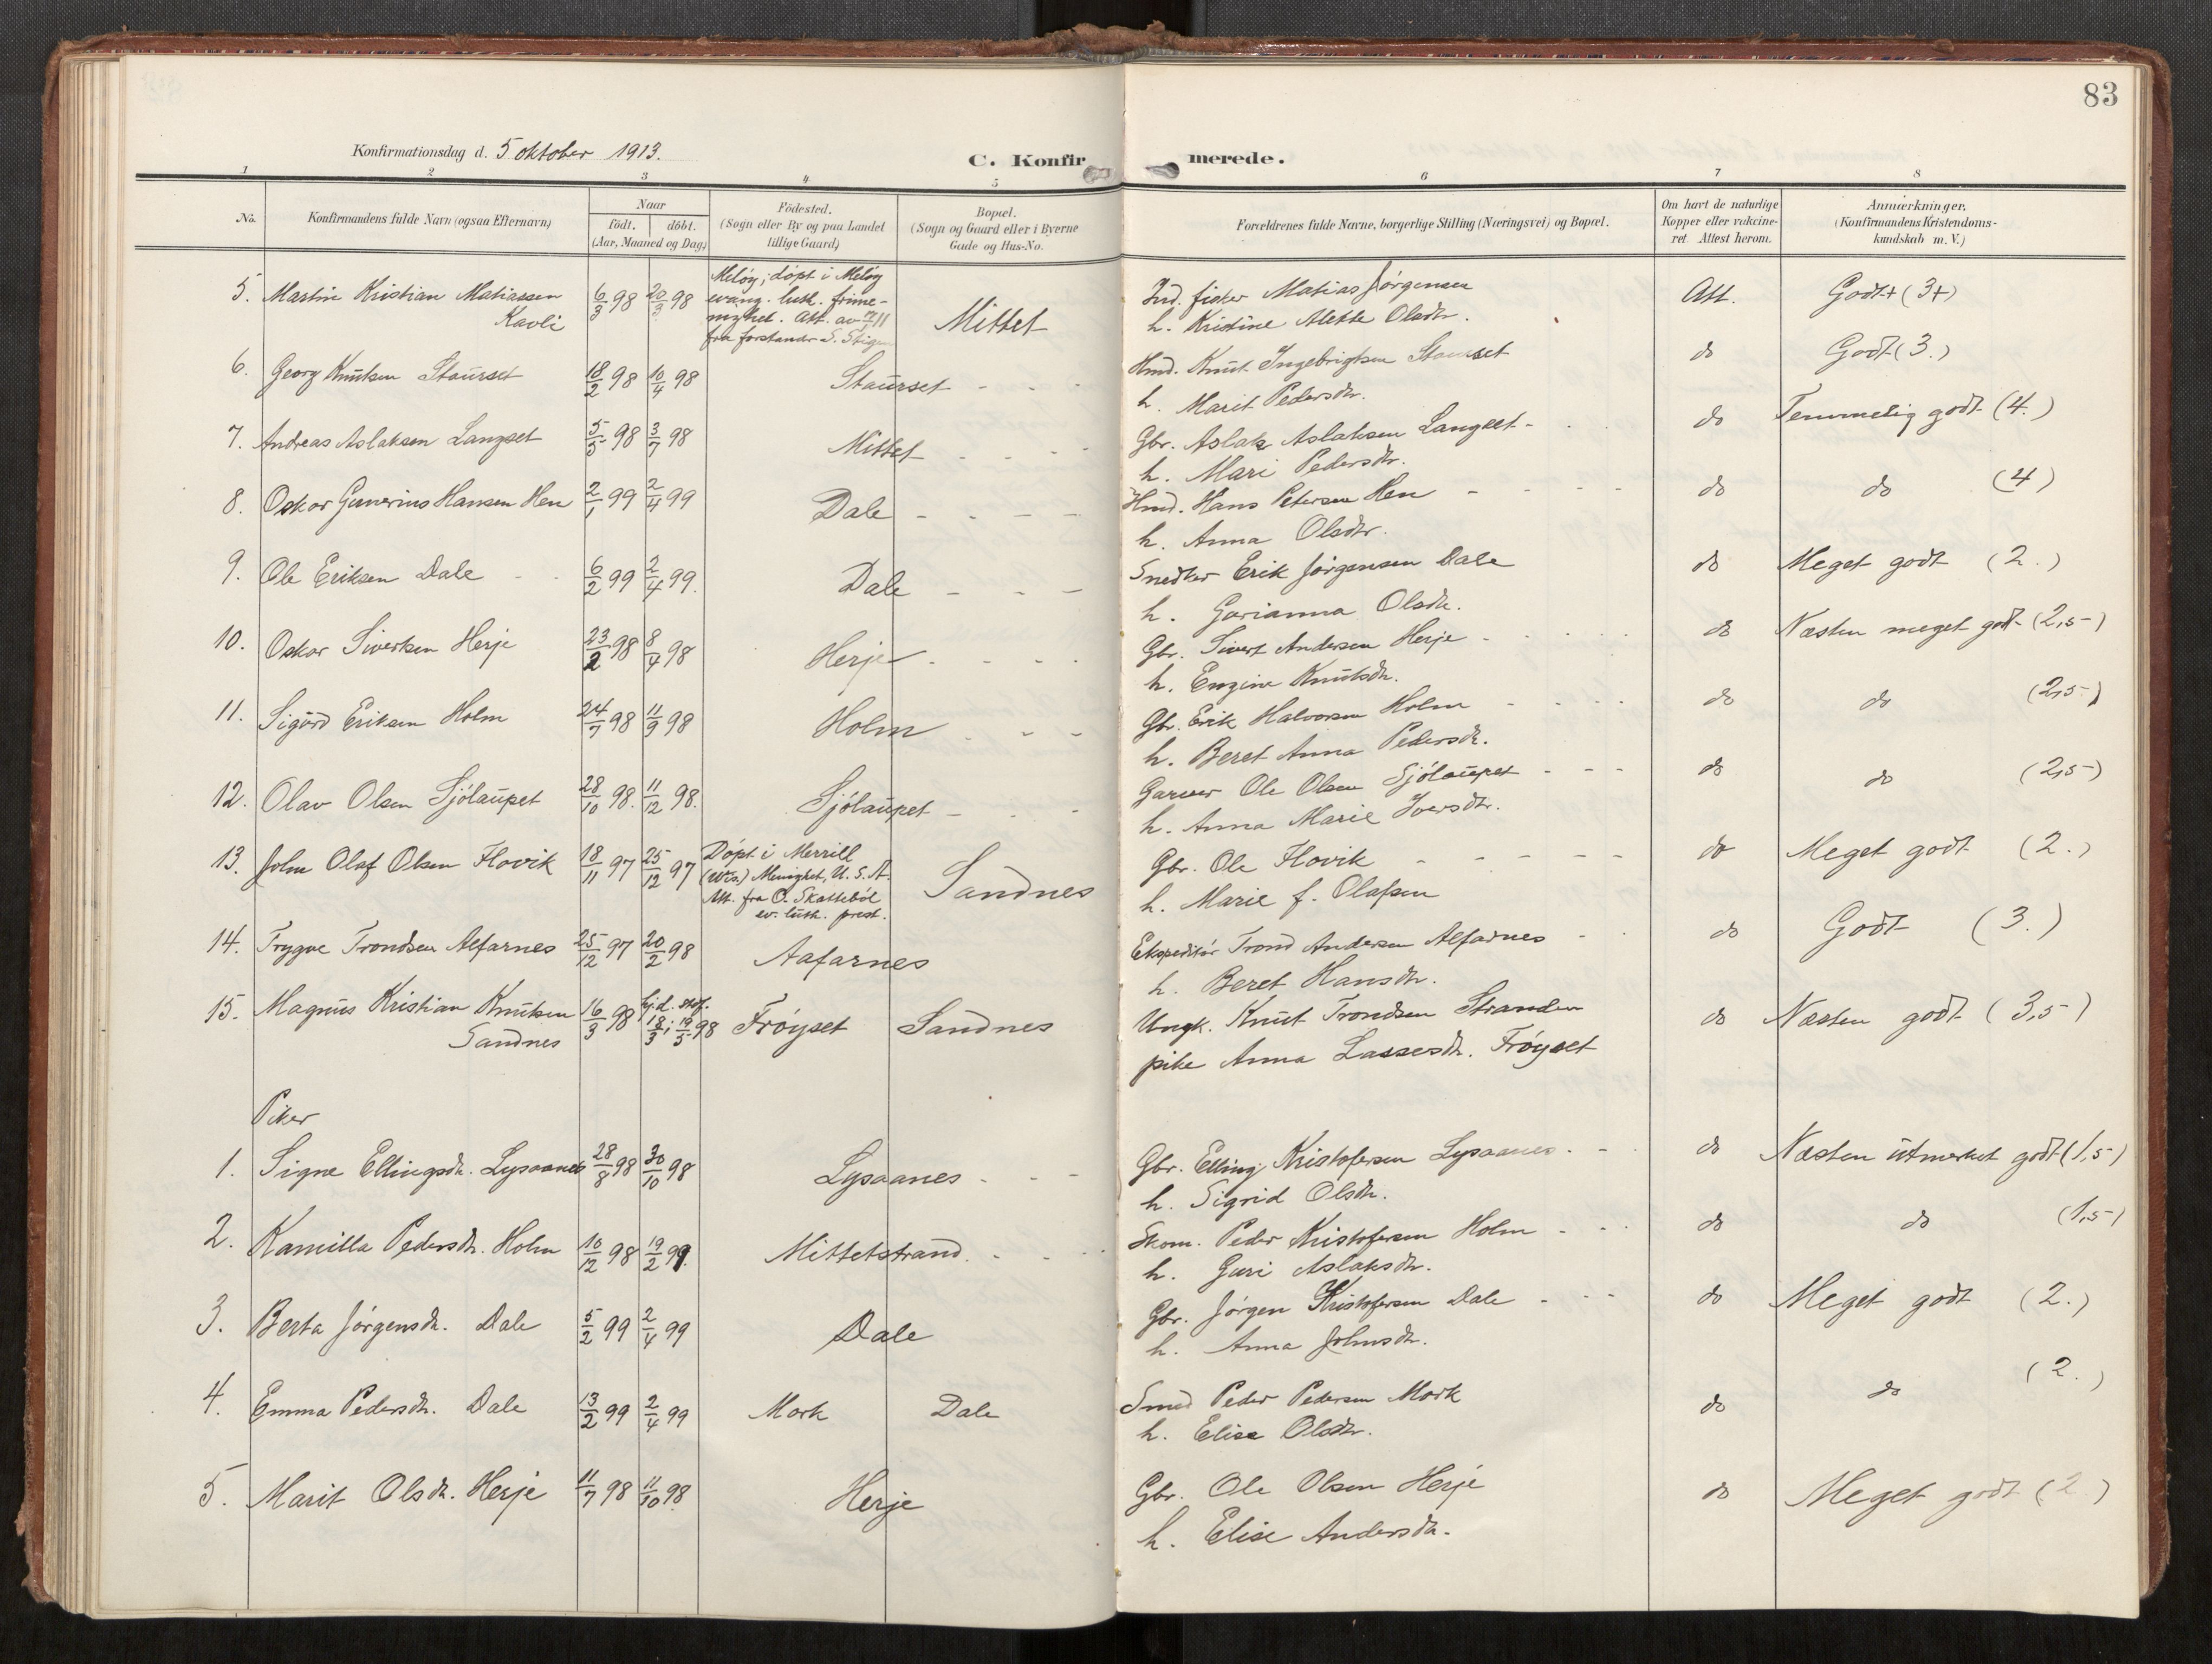 83
Konfirmationsdag d. 5 oktober 1913.
C. Konfirmerede.
1 2 3 4 5 6 7 8
No.
Konfirmandens fulde Navn (ogsaa Efternavn)
Naar
födt. döbt.
(Aar, Maaned og Dag)
Födested.
(Sogn eller By og paa Landet
tillige Gaard)
Bopæl.
(Sogn og Gaard eller i Byerne
Gade og Hus-No.
Forældrenes fulde Navne, borgerlige Stilling (Næringsvei) og Bopæl.
Om havt de naturlige
Kopper eller vakcine-
ret Attest herom.
Anmærkninger.
(Konfirmandens Kristendoms-
kundskab m. V.)
5. Martin Kristian Matiassen Kavli 6/3 98 20/3 98
Meløy; døpt i Meløy
evang. luth. frime-
nighet. Att. av
fra forstandr S.
Mittet
Ind. fisker Matias Jørgensen
h. Kristine Mekke Olsdtr.
Att. Godt+ (3+)
6. Georg Knutsen Staurset 18/2 98 10/4 98 Staurset - - -
Hmd. Knut Ingebrigtsen Staurset
h. Marit Pedersdtr.
do Godt (3.)
7. Andreas Aslaksen Langset 5/5 98 3/7 98 Mittet - - - -
Gbr. Aslak Aslaksen Langset -
h. Mari Pedersdtr.
do Temmelig godt (4.)
8. Oskar Gunerius Hansen Hen 2/1 99 2/4 99 Dale - - - -
Hmd. Hans Petersen Hen - - - -
h. Anna Olsdtr.
do do (4)
9. Ole Eriksen Dale 6/2 99 2/4 99. Dale - - -
Snedker Erik Jørgensen Dale
h. Gurianna Olsdtr.
do Meget godt (2.)
10. Oskar Sivertsen Herje 23/2 98 8/4 98 Herje - - - -
Gbr. Sivert Andersen Herje - - - -
h. Engine Knutsdtr.
do Næsten meget godt (2,5-)
11. Sigurd Eriksen Holm 24/7 98 11/9 98 Holm - - -
Gbr. Erik Halvorsen Holm - - - -
h. Beret Anna Pedersdtr.
do do (2,5-)
12. Olav Olsen Sjølaupet 28/10 98. 11/12 98. Sjølaupet - - -
Garver Ole Olsen Sjølaupet - - -
h. Anna Marie Iversdtr.
do do (2,5-)
13. John Olaf Olsen Hovik 18/11 97 25/12 97
Døpt i Merrill
(Wis.) Menighet, U.S.A.
Att. fra O. Skattebøl
ev. luth. prest.
Sandnes
Gbr. Ole Hovik - - - - -
h. Marie f. Olafsen
do Meget godt (2.)
14. Trygve Trondsen Alfarnes 25/12 97 20/2 98 Aafarnes
Ekspeditør Trond Andersen Alfarnes -
h. Beret Hansdtr.
do Godt (3.)
15. Magnus Kristian Knutsen Sandnes 16/3 98 hjd. stdf. 18/3; 19/5 98 Frøyset Sandnes
Ungk. Knut Trondsen Stranden
pike Anna Lassesdtr. Frøyset
do Næsten godt (3,5-)
Piker
1. Signe Ellingsdtr. Lysaanes 28/8 98 30/10 98 Lysaanes - - -
Gbr. Elling Kristofersen Lysaanes. -
h. Sigrid Olsdtr.
do Næsten utmerket godt (1,5-)
2. Kamilla Pedersdtr. Holm 10/12 98 19/2 99. Mittetstrand. - - -
Skom. Peder Kristofersen Holm - - -
h. Guri Aslaksdtr.
do do (1,5-)
3. Berta Jørgensdtr. Dale 5/2 99 2/4 99 Dale
Gbr. Jørgen Kristofersen Dale - - -
h. Anna Johnsdtr.
do Meget godt (2.)
4. Emma Pedersdtr. Dale 13/2 99 2/4 99 Mork Dale
Smed Peder Pedersen Mork
h. Elise Olsdtr.
do do (2.)
5. Marit Olsdtr. Herje 11/7 98 11/10 98 Herje
Gbr. Ole Olsen Herje
h. Elise Andersdtr.
do Meget godt (2.)